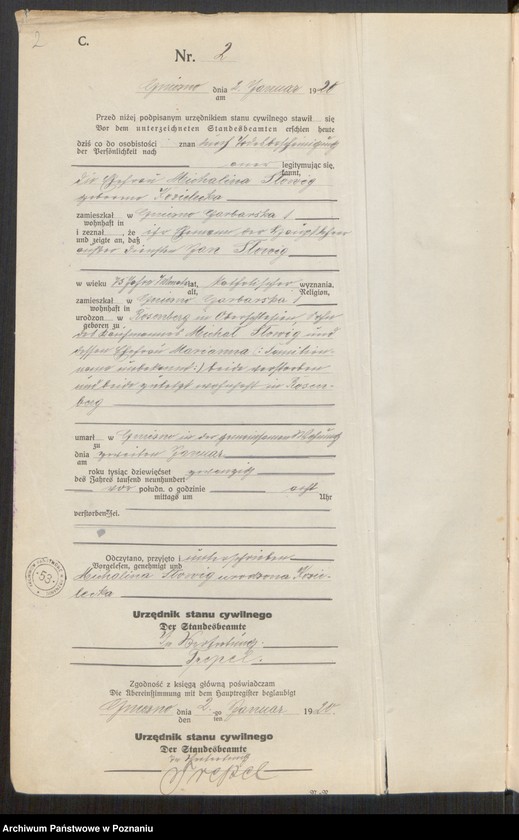 2
C.
Nr. 2
Gniezno dnia 2. Januar 1920
am
Przed niżej podpisanym urzędnikiem stanu cywilnego stawił się
Vor dem unterzeichneten Standesbeamten erschien heute
dziś co do osobistości znan durch
der Persönlichkeit nach
legitymując się,
kannt,
die Ehefrau Michalina Slowig
geborene Kozielecka
zamieszkał w Gniezno Garbarska 1
wohnhaft in
i zeznał, że ihr Ehemann der Hauptlehrer
und zeigte an, daß
außer Dienster Jan Slowig
w wieku 75 Jahre lat, katholischer wyznania,
alt, Religion,
zamieszkał w Gniezno Garbarska 1
wohnhaft in
urodzon w Rosenberg in Oberschlesien Sohn
geboren zu
des Kaufmannes Michal Slowig und
dessen Ehefrau Marianna (: Familien-
name unbekannt :) beide verstorben
und beide zuletzt wohnhaft in Rosen-
berg
umarł w Gniezno in der gemeinsamen Wohnung
zu
dnia zweiten Januar
am
roku tysiąc dziewięćset zwanzig
des Jahres tausend neunhundert
vor połudn. o godzinie acht
mittags um Uhr
verstorben sei.
Odczytano, przyjęto i unterschrieben
Vorgelesen, genehmigt und
Michalina Slowig urodzona Kozie-
lecka
Urzędnik stanu cywilnego
Der Standesbeamte
In Vertretung
Zgodność z księgą główną poświadczam
Die Übereinstimmung mit dem Hauptregister beglaubigt
Gniezno dnia 2. go Januar 1920.
den ten
Urzędnik stanu cywilnego
Der Standesbeamte
In Vertretung
53
Archiwum Państwowe w Poznaniu